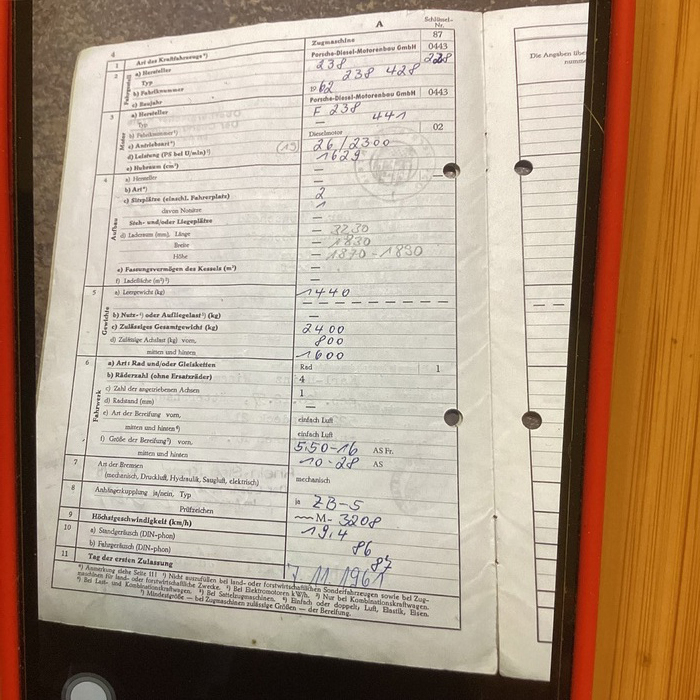 A
Schlüssel-Nr.
4
1 Art des Kraftfahrzeugs¹) Zugmaschine 87
2 a) Hersteller Porsche-Diesel-Motorenbau GmbH 0443
Typ 238 228
b) Fabriknummer 238 428
c) Baujahr 1962
3 a) Hersteller Porsche-Diesel-Motorenbau GmbH 0443
Typ F 238
b) Fabriknummer¹) 441
c) Antriebsart³) Dieselmotor 02
d) Leistung (PS bei U/min)³) (19) 26/2300
e) Hubraum (cm³) 1629
Motor
4 a) Hersteller —
b) Art⁴) —
c) Sitzplätze (einschl. Fahrerplatz) 2
davon Notsitze 1
Steh- und/oder Liegeplätze —
d) Laderaum (mm), Länge — 3230
Breite — 1830
Höhe — 1370-1830
e) Fassungsvermögen des Kessels (m³) —
f) Ladefläche (m²) —
Aufbau
5 a) Leergewicht (kg) 1440
b) Nutz-⁵) oder Aufliegelast⁵) (kg) —
c) Zulässiges Gesamtgewicht (kg) 2400
d) Zulässige Achslast (kg) vorn, 800
mitten und hinten 1600
Gewichte
6 a) Art: Rad und/oder Gleisketten Rad 1
b) Räderzahl (ohne Ersatzräder) 4
c) Zahl der angetriebenen Achsen 1
d) Radstand (mm) —
e) Art der Bereifung vorn, einfach Luft
mitten und hinten⁶) einfach Luft
f) Größe der Bereifung⁷) vorn, 5.50-16 AS Fr.
mitten und hinten 10-28 AS
Fahrwerk
7 Art der Bremsen
(mechanisch, Druckluft, Hydraulik, Saugluft, elektrisch) mechanisch
8 Anhängerkupplung ja/nein, Typ ja ZB-5
Prüfzeichen ~M- 3208
9 Höchstgeschwindigkeit (km/h) 19,4
10 a) Standgeräusch (DIN-phon) 86
b) Fahrgeräusch (DIN-phon) 87
11 Tag der ersten Zulassung 7.11.1961
¹) Anmerkung siehe Seite 11! ²) Nicht auszufüllen bei land- oder forstwirtschaftlichen Sonderfahrzeugen sowie bei Zug-
maschinen für land- oder forstwirtschaftliche Zwecke. ³) Bei Elektromotoren kW/h. ⁴) Nur bei Kombinationskraftwagen.
⁵) Bei Last- und Kombinationskraftwagen. ⁵) Bei Sattelzugmaschinen. ⁶) Einfach oder doppelt, Luft, Elastik, Eisen.
⁷) Mindestgröße — bei Zugmaschinen zulässige Größen — der Bereifung.
Die Angaben über